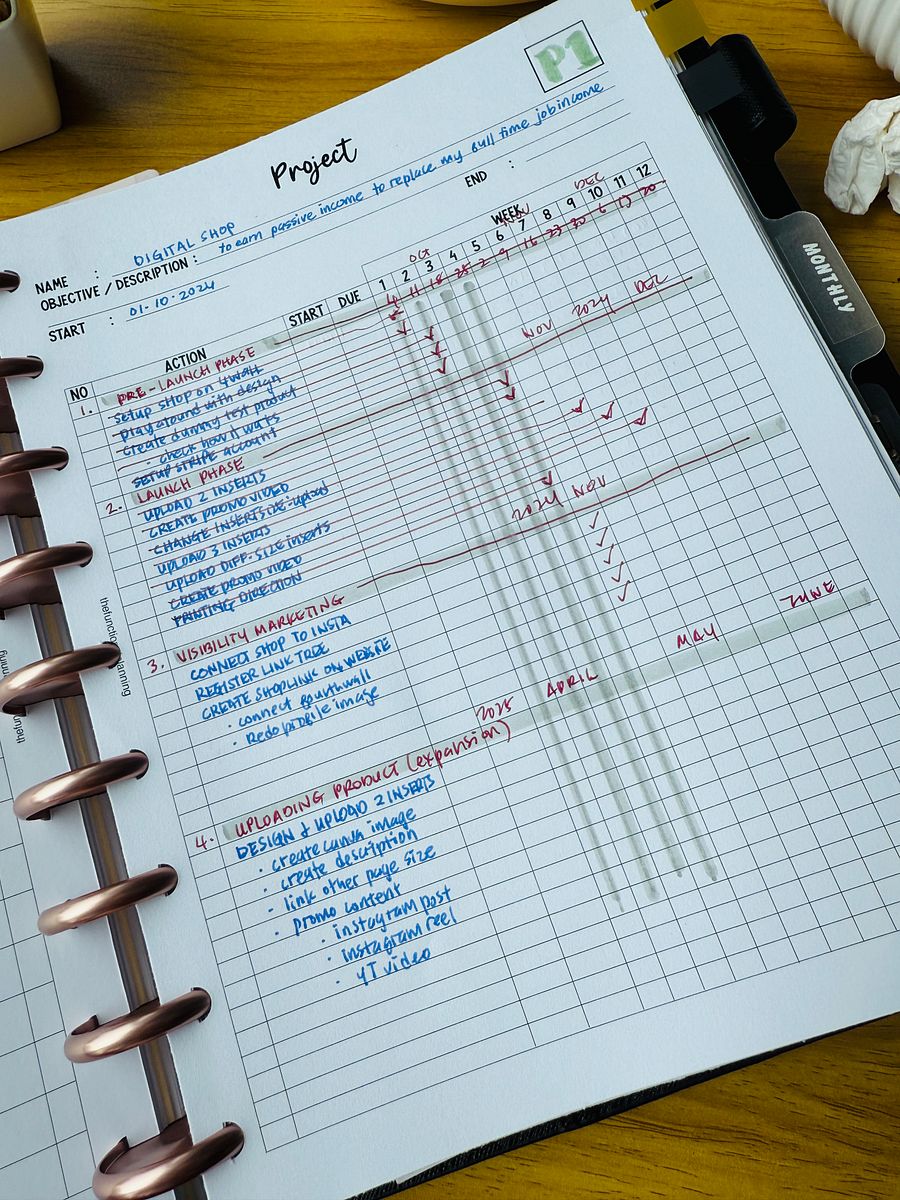 P1
Project
NAME : DIGITAL SHOP
OBJECTIVE / DESCRIPTION : to earn passive income to replace my full time job income
START : 01.10.2024
END :
WEEK
OCT NOV DEC
1 2 3 4 5 6 7 8 9 10 11 12
4 11 18 25 2 9 16 23 30 6 13 20
NO ACTION START DUE
1. PRE-LAUNCH PHASE NOV 2024 DEC
setup shop on 4wall
play around with design
create dummy test product
· check how it works
SETUP STRIPE account
2. LAUNCH PHASE
UPLOAD 2 INSERTS
CREATE PROMO VIDEO
CHANGE INSERT SIZE · upload
UPLOAD 3 INSERTS
UPLOAD DIFF. SIZE inserts
CREATE PROMO VIDEO
PRINTING DIRECTION
3. VISIBILITY MARKETING 2024 NOV
CONNECT SHOP TO INSTA
REGISTER LINK TREE
CREATE SHOPLINK ON WEBSITE
· connect fourthwall
· Redo profile image
4. UPLOADING PRODUCT (expansion) 2025 APRIL MAY JUNE
DESIGN & UPLOAD 2 INSERTS
· create canva image
· create description
· link other page size
· promo content
· instagram post
· instagram reel
· YT video
MONTHLY